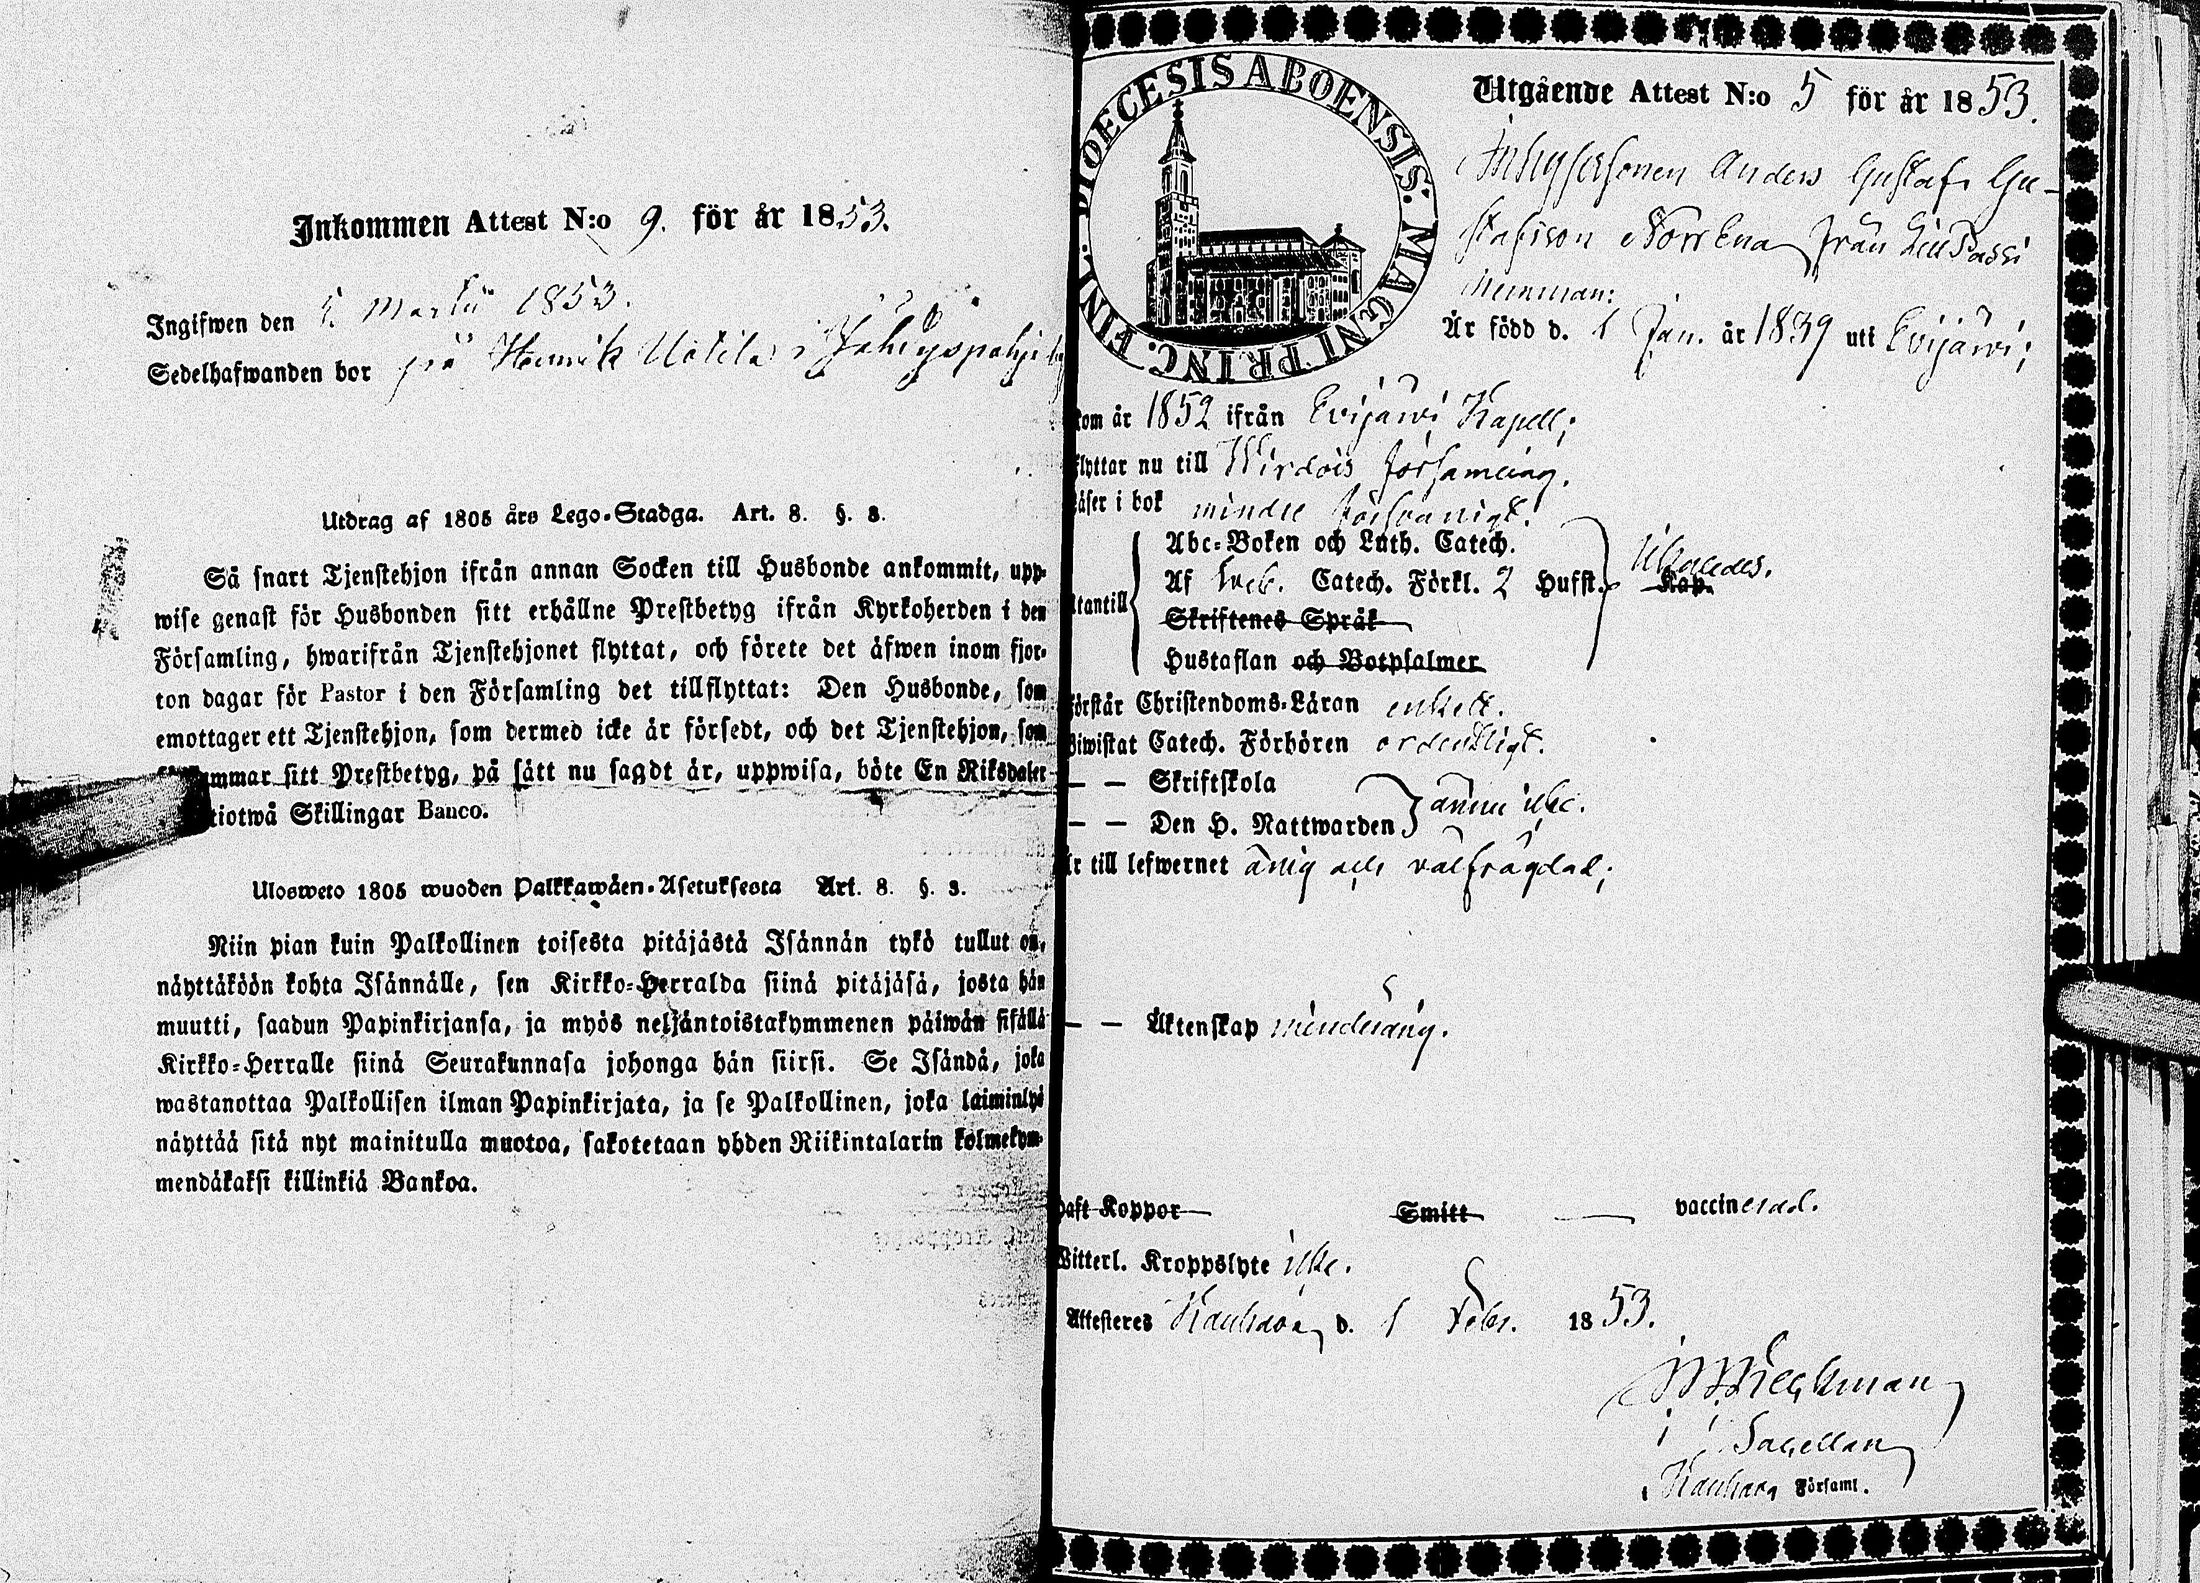 Inkommen Attest N:o 9. för år 1853.
Ingifwen den 5. Martii 1853.
Sedelhafwanden bor på Henrik Uotila i
Utdrag af 1805 års Lego-Stadga. Art. 8. §. 3.
Så snart Tjenstehjon ifrån annan Socken till Husbonde ankommit, upp-
wise genast för Husbonden sitt erhållne Prestbetyg ifrån Kyrkoherden i den
Församling, hwarifrån Tjenstehjonet flyttat, och förete det äfwen inom fjor-
ton dagar för Pastor i den Församling det tillflyttat: Den Husbonde, som
emottager ett Tjenstehjon, som dermed icke är försedt, och det Tjenstehjon, som
ummar sitt Prestbetyg, på sätt nu sagdt är, uppwisa, böte En Riksdaler
tiotwå Skillingar Banco.
Ulosweto 1805 wuoden Palkkawäen-Asetuksesta Art. 8. §. 3.
Niin pian kuin Palkollinen toisesta pitäjästä Isännän tykö tullut on,
näyttäköön kohta Isännälle, sen Kirkko-Herralda siinä pitäjäsä, josta hän
muutti, saadun Papinkirjansa, ja myös neljäntoistakymmenen päiwän sisällä
Kirkko-Herralle siinä Seurakunnasa johonga hän siirsi. Se Isändä, joka
wastanottaa Palkollisen ilman Papinkirjata, ja se Palkollinen, joka laiminlyö
näyttää sitä nyt mainitulla muotoa, sakotetaan yhden Riikintalarin kolmekym-
mendäkaksi killinkiä Bankoa.
DIOECESIS ABOENSIS. MAGNI PRINC. FINL.
Utgående Attest N:o 5 för år 1853.
Inhysesonen Anders Gustaf Gu-
stafsson Norrena från Lill Passi
hemman:
Är född d. 1 Jan. år 1839 uti Evijärvi;
kom år 1852 ifrån Evijärvi Kapell;
flyttar nu till Wirdois församling.
Läser i bok mindre försvarligt.
Abc-Boken och Luth. Catech.
Af Sveb. Catech. Förkl. 2 Hufst. Kap.
utantill
Skriftenes Språk
Hustaflan och Botpsalmer
Förstår Christendoms-Läran enkelt.
Biwistat Catech. Förhören ordentligt.
— — Skriftskola
— — Den H. Nattwarden ännu icke.
Är till lefwernet ärlig och välfrägdad;
— — Äktenskap minderårig.
Haft Koppor Smitt — vaccinerad.
Witterl. Kroppslyte icke.
Attesteres Kauhava d. 1 Febr. 1853.
Sacellan
i Kauhava Församl.